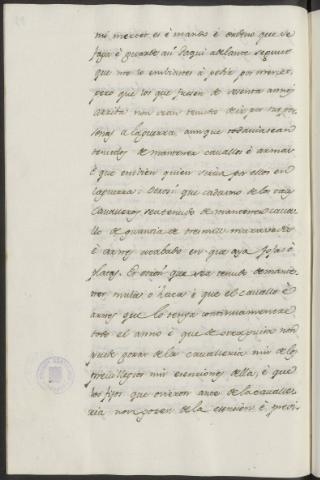 mi merced, es é mando é ordeno que se
faga é guarde aú daqui adelante segunt
que me lo embiastes á pedir por merced,
pero que los que fuesen de sesenta annos
arriba non sean tenudos de ir por sus per-
sonas a la guerra, aunque todavia sean
tenudos de mantener cavallos é armas
é que embien quien sirva por ellos en
la guerra: Otrosi que cada uno de los tales
Cavalleros sea tenudo de mantener cava-
llo de quantia de tres mill maravedis
é arnes acabado en que aya fojas ó
platas. Et otrosi que sea tenudo de mante-
ner mula ó haca é que el cavallo é
armes que lo tenga continuamente
todo el anno é que de otra guisa non
pueda gozar de la cavalleria nin de los
previllegios nin esenciones della, é que
los fijos que ovieron ante de la cavalle-
ria non gozen de la esencion é previ-